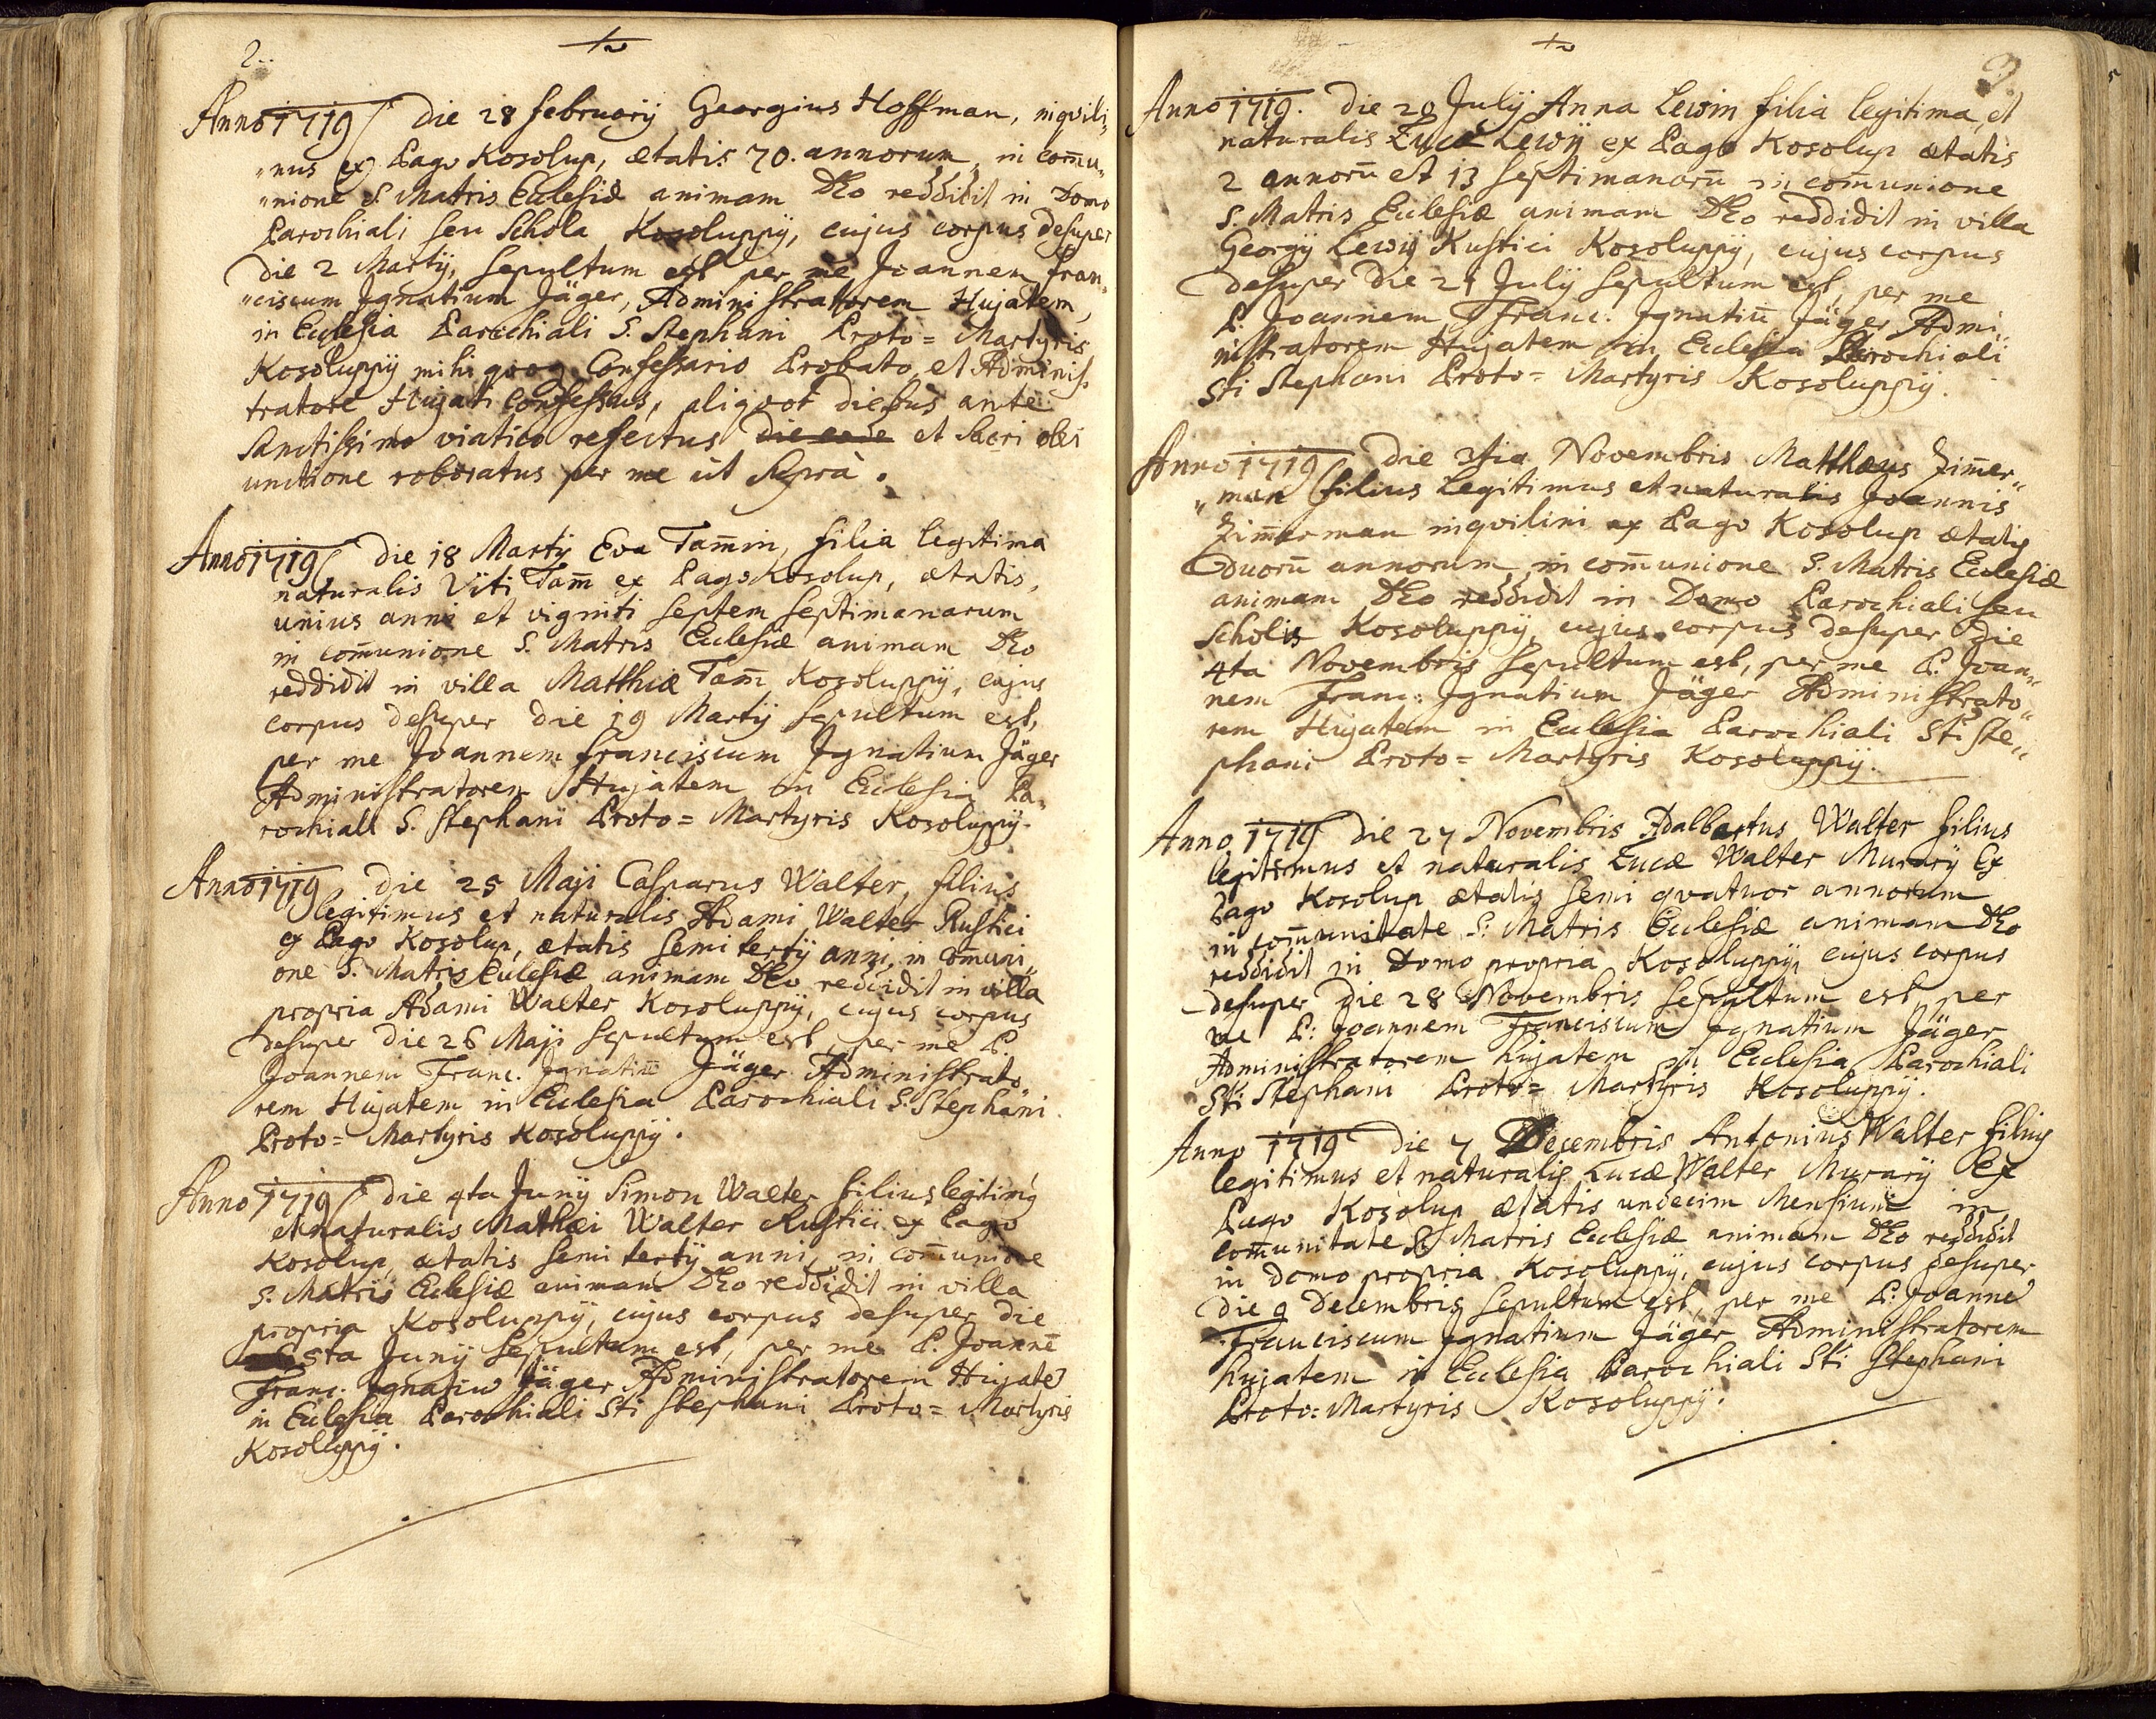 2.
Anno 1719 Die 28 februarÿ Georgius Hoffman, inqvili„
„nus ex Pago Kosolup, ætatis 70. annorum, in com̄u„
„nione S. Matris Ecclesiæ animam DEo reddidit in Domo
Parochiali seu Schola Kosoluppÿ, cujus corpus desuper
Die 2 Martÿ, sepultum est per me Joannem fran„
„ciscum Jgnatium Jäger, Administratorem Hujatem,
in Ecclesia Parochiali S. Stephani Proto= Martyris
Kosoluppÿ mihi qvoq Confessario Probato, et Adminis„
tratore Hujati Confessus, aliqvot diebus ante
Sanctissimo viatico refectus die eade et Sacri olei
unctione roboratus per me ut Supra.
Anno 1719 Die 18 Martÿ Eva Tam̄in, filia legitima
naturalis Viti Tam̄ ex Pago Kosolup, ætatis,
unius anni et viginti septem septimanarum
in com̄unione S. Matris Ecclesiæ animam DEo
reddidit in villa Matthiæ Tam̄ Kosoluppÿ, cujus
corpus desuper die 19 Martÿ sepultum est,
per me Joannem franciscum Jgnatium Jäger
Administratorem Hujatem in Ecclesia Pa„
rochiali S. Stephani Proto= Martyris Kosoluppÿ.
Anno 1719 Die 25 Maji Casparus Walter, filius
legitimus et naturalis Adami Walter Rustici
ex Pago Kosolup, ætatis semi tertÿ anni, in com̄uni„
one S. Matris Ecclesiæ animam DEo reddidit in villa
propria Adami Walter Kosoluppÿ, cujus corpus
desuper Die 26 Maji sepultum est, per me P.
Joannem Franc. Jgnatiū Jäger Administrato„
rem Hujatem in Ecclesia Parochiali S. Stephani
Proto= Martyris Kosoluppÿ.
Anno 1719 Die 4ta Junÿ Simon Walter filius legitim9
et naturalis Mathæi Walter Rustici ex Pago
Kosolup, ætatis semi tertÿ anni, in com̄unione
S. Matris Ecclesiæ animam DEo reddidit in villa
propria Kosoluppÿ, cujus corpus desuper die
5ta Junÿ sepultum est, per me P. Joannē
Franc. Jgnatiū Jäger Administratorem Hujatē
in Ecclesia Parochiali Sti Stephani Proto= Martyris
Kosoluppÿ.
3.
Anno 1719. Die 20 Julÿ Anna Lewin filia legitima, et
naturalis Lucæ Lewÿ ex Pago Kosolup ætatis
2 annorū et 13 septimanarū in com̄unione
S. Matris Ecclesiæ animam DEo reddidit in villa
Georgÿ Lewÿ Rustici Kosoluppÿ, cujus corpus
desuper Die 21 Julÿ sepultum est, per me
P. Joannem Franc. Jgnatiū Jäger Admi„
nistratorem Hujatem in Ecclesia Parochiali
Sti Stephani Proto= Martyris Kosoluppÿ.
Anno 1719 Die Novembris Matthæus Zim̄er„
„man filius Legitimus et naturalis Joannis
Zim̄erman inqvilini ex Pago Kosolup ætatis
Duorū annorum, in com̄unione S. Matris Ecclesiæ
animam DEo reddidit in Domo Parochiali seu
Scholis Kosoluppÿ, cujus corpus desuper Die
4ta Novembris sepultum est, per me P. Joan„
nem Franc: Jgnatium Jäger Administrato„
rem Hujatem in Ecclesia Parochiali Sti Ste„
phani Proto= Martyris Kosoluppÿ.
Anno 1719 Die 27 Novembris Adalbertus Walter filius
legitimus et naturalis Lucæ Walter Murarÿ Ex
Pago Kosolup ætatis semi qvatuor annorum
in com̄unitate S. Matris Ecclesiæ animam DEo
reddidit in Domo propria Kosoluppÿ, cujus corpus
desuper Die 28 Novembris sepultum est, per
me P: Joannem Franciscum Jgnatium Jäger
Administratorem hujatem in Ecclesia Parochiali
Sti Stephani Proto= Martyris Kosoluppÿ.
Anno 1719 Die 7 Decembris Antonius Walter filius
legitimus et naturalis Lucæ Walter Murarÿ Ex
Pago Kosolup ætatis undecim Mensium in
com̄unitate S. Matris Ecclesiæ animam DEo reddidit
in Domo propria Kosoluppÿ, cujus corpus desuper
Die 9 Decembris sepultum est, per me P: Joannē
Franciscum Jgnatium Jäger Administratorem
hujatem in Ecclesia Parochiali Sti Stephani
Proto= Martyris Kosoluppÿ.